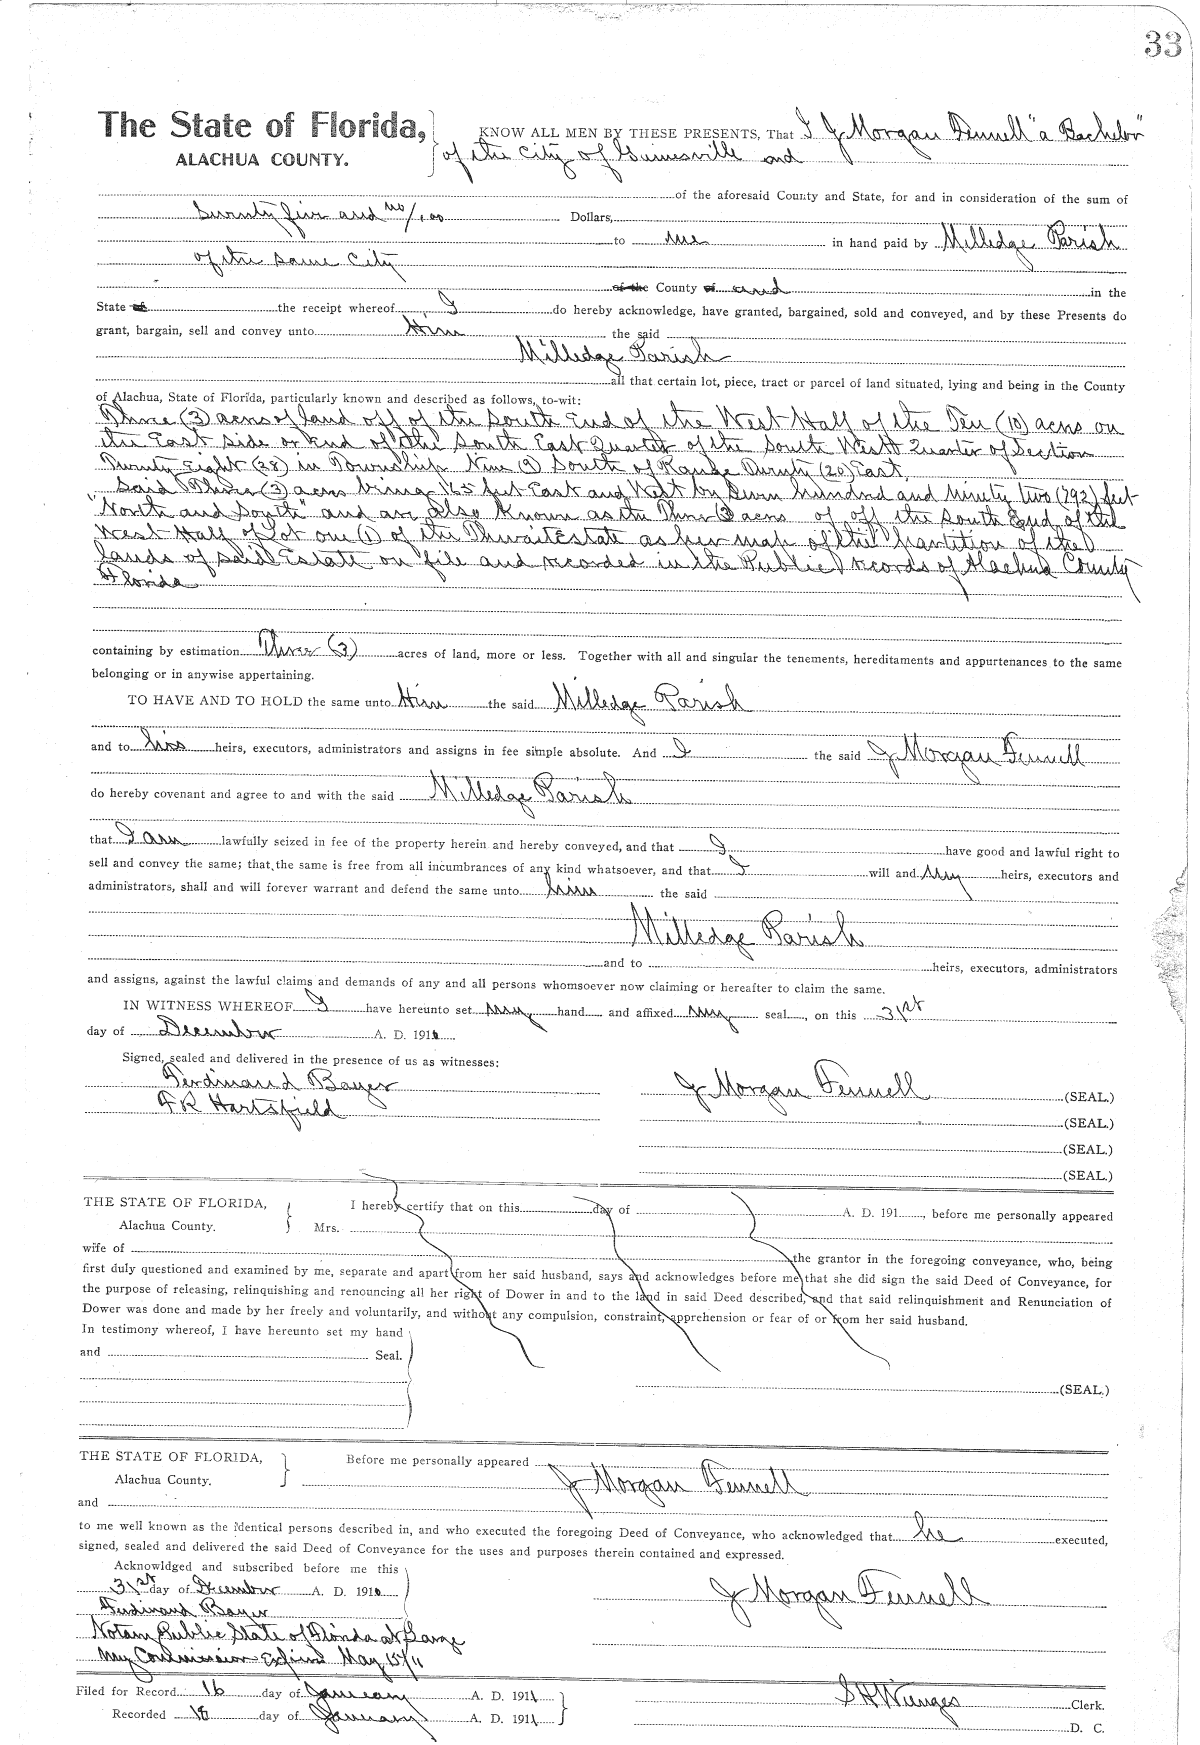 33
The State of Florida, KNOW ALL MEN BY THESE PRESENTS, That I J Morgan Fennell "a Bachelor"
ALACHUA COUNTY. of the City of Gainesville and
of the aforesaid County and State, for and in consideration of the sum of
Seventy five and no/100 Dollars,
to me in hand paid by Milledge Parish
of the same City
of the County of and in the
State of the receipt whereof I do hereby acknowledge, have granted, bargained, sold and conveyed, and by these Presents do
grant, bargain, sell and convey unto Him the said
Milledge Parish
all that certain lot, piece, tract or parcel of land situated, lying and being in the County
of Alachua, State of Florida, particularly known and described as follows, to-wit:
Three (3) acres of land off of the South End of the West Half of the Ten (10) acres on
the East side or End of the South East Quarter of the South West Quarter of Section
Twenty Eight (28) in Township Nine (9) South of Range Twenty (20) East.
Said Three (3) acres being 165 feet East and West by Seven hundred and ninety two (792) feet
"North and South" and are also Known as the Three (3) acres of off the South End of the
West Half of Lot one (1) of the Thwait Estate as per map of the partition of the
lands of said Estate on file and recorded in the Public records of Alachua County
Florida
containing by estimation Three (3) acres of land, more or less. Together with all and singular the tenements, hereditaments and appurtenances to the same
belonging or in anywise appertaining.
TO HAVE AND TO HOLD the same unto Him the said Milledge Parish
and to his heirs, executors, administrators and assigns in fee simple absolute. And I the said J Morgan Fennell
do hereby covenant and agree to and with the said Milledge Parish
that I am lawfully seized in fee of the property herein and hereby conveyed, and that I have good and lawful right to
sell and convey the same; that the same is free from all incumbrances of any kind whatsoever, and that I will and my heirs, executors and
administrators, shall and will forever warrant and defend the same unto him the said
Milledge Parish
and to heirs, executors, administrators
and assigns, against the lawful claims and demands of any and all persons whomsoever now claiming or hereafter to claim the same.
IN WITNESS WHEREOF I have hereunto set my hand and affixed my seal, on this 31st
day of December A. D. 1910
Signed, sealed and delivered in the presence of us as witnesses:
Ferdinand Bayer J Morgan Fennell (SEAL.)
FR Hartsfield (SEAL.)
(SEAL.)
(SEAL.)
THE STATE OF FLORIDA, I hereby certify that on this day of A. D. 191 , before me personally appeared
Alachua County. Mrs.
wife of the grantor in the foregoing conveyance, who, being
first duly questioned and examined by me, separate and apart from her said husband, says and acknowledges before me that she did sign the said Deed of Conveyance, for
the purpose of releasing, relinquishing and renouncing all her right of Dower in and to the land in said Deed described, and that said relinquishment and Renunciation of
Dower was done and made by her freely and voluntarily, and without any compulsion, constraint, apprehension or fear of or from her said husband.
In testimony whereof, I have hereunto set my hand
and Seal.
(SEAL.)
THE STATE OF FLORIDA, Before me personally appeared
Alachua County. J Morgan Fennell
and
to me well known as the identical persons described in, and who executed the foregoing Deed of Conveyance, who acknowledged that he executed,
signed, sealed and delivered the said Deed of Conveyance for the uses and purposes therein contained and expressed.
Acknowldged and subscribed before me this
31st day of December A. D. 1910 J Morgan Fennell
Ferdinand Bayer
Notary Public State of Florida at Large
My Commission Expires May 15/11
Filed for Record 16 day of January A. D. 1911 S H Wienges Clerk.
Recorded 18 day of January A. D. 1911 D. C.